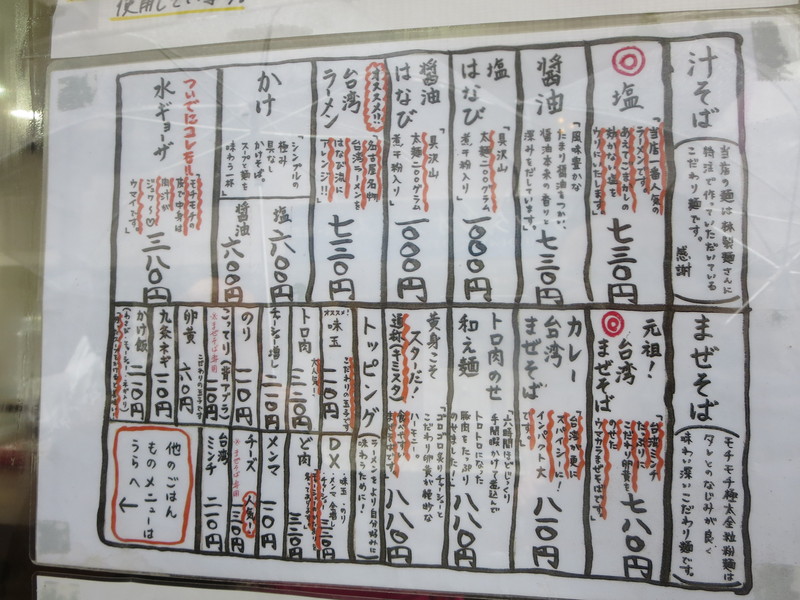 汁そば
当店の麺は林製麺さんに
特注で作っていただいている
こだわり麺です。
感謝
◎塩
「当店一番人気の
ラーメンです。
あえてごまかしの
効かない塩を
ウリにいたします」
七三〇円
醤油
「風味豊かな
たまり醤油をつかい、
醤油本来の香りと
深みをだしています」
七三〇円
塩
はなび
「具沢山
太麺二〇〇グラム
煮干粉入り」
一〇〇〇円
醤油
はなび
「具沢山
太麺二〇〇グラム
煮干粉入り」
一〇〇〇円
オススメ!!
台湾
ラーメン
「名古屋名物
台湾ラーメンを
はなび流に
アレンジ!!」
七三〇円
かけ
「シンプルの
極み
具なし
かけそば。
スープと麺を
味わう一杯」
塩 六〇〇円
醤油 六〇〇円
ついでにコレモ!!
水ギョーザ
「モチモチの
皮で中身は
肉汁が
ジュワ〜♡
ウマイです」
三八〇円
まぜそば
モチモチ極太全粒粉麺は
タレとのなじみが良く
味わい深いこだわり麺です。
◎元祖!
台湾
まぜそば
「台湾ミンチ
たっぷりに
こだわり卵黄を
のせた
ウマカラまぜそばです」
七八〇円
カレー
台湾
まぜそば
「台湾が更に
スパイシーに!
インパクト大
です」
八八〇円
トロ肉のせ
和え麺
「六時間ほどじっくり
手間暇かけて煮込んで
トロトロになった
豚肉をたっぷり
のせました!」
八八〇円
黄身こそ
スターだ!
通称(キミスタ)
「ゴロゴロ炙りチャーシューと
こだわり卵黄が絶妙な
ハーモニー。
食べやすい
まぜそばです」
八八〇円
トッピング
ラーメンをより自分好みに
味わうために!
オススメ!
味玉
こだわりの玉子です
トロ肉
大人気!
チャーシュー増し
のり
こってり(背アブラ)
※まぜそば専用
卵黄
こだわりの玉子です
六〇円
九条ネギ
かけ飯
DX
味玉・のり
メンマ全増し
ど肉
メンマ
チーズ
人気!!
台湾
ミンチ
他のごはん
ものメニューは
うらへ
←